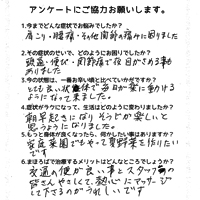 アンケートにご協力お願いします。
1.今までどんな症状でお悩みでしたか？
肩こり・腰痛・その他関節の痛みに困りました
2.その症状のせいで、どのようにお困りでしたか？
頭痛・伸び・関節痛で夜目がさめる事も
ありました
3.今の状態は、一番お辛い頃と比べていかがですか？
とても良い状体で毎日が楽に動ける
ようになって来ました。
4.症状がラクになって、生活はどのように変わりましたか？
朝早起きになりそうじが楽しいと
思うようになりました
5.もっと身体が良くなったら、何かしたい事はありますか？
家庭菜園でもやって夏野菜を作りたい
です
6.ままろはで治療するメリットはどんなところでしょうか？
交通の便が良い事とスタッフの
皆さんやさしくて、熱心にマッサージ
して下さるのがうれしいです